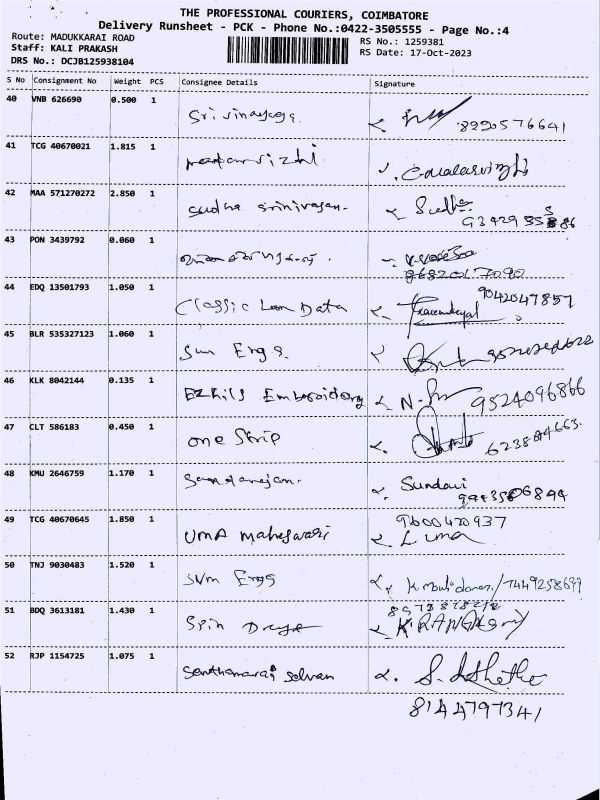 THE PROFESSIONAL COURIERS, COIMBATORE
Delivery Runsheet - PCK - Phone No.:0422-3505555 - Page No.:4
Route: MADUKKARAI ROAD
RS No.: 1259381
Staff: KALI PRAKASH
RS Date: 17-Oct-2023
DRS No.: DCJB125938104
S No Consignment No Weight PCS Consignee Details Signature
40 VNB 626690 0.500 1 8220576641
41 TCG 40670021 1.815 1
42 MAA 571270272 2.850 1 Sudha Srinivasan. Sudha
43 PON 3439792 0.060 1
8682017090
44 EDQ 13501793 1.050 1 Classic Lom Data 9042047857
45 BLR 535327123 1.060 1 Sun Engs.
46 KLK 8042144 0.135 1 Ezhils Embroidery 9524096866
47 CLT 586183 0.450 1 one Strip
48 KMU 2646759 1.170 1 Sundari
49 TCG 40670645 1.850 1 UMA Maheswari 9600420937
Uma
50 TNJ 9030483 1.520 1 SVM Engs
51 BDQ 3613181 1.430 1 Spin
52 RJP 1154725 1.075 1 Senthamarai Selvan
8144797341